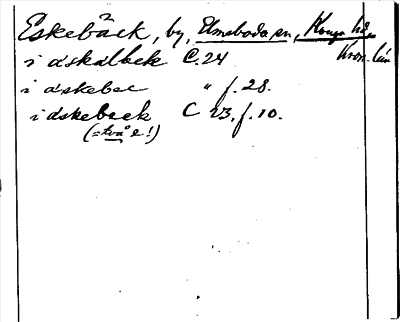 Eskebäck, by, Elmeboda sn, Konga hd
Kron. län
i æskælbek C. 24
i æskebec " f. 28.
i æskebeck C 23, f. 10.
(= två e!)